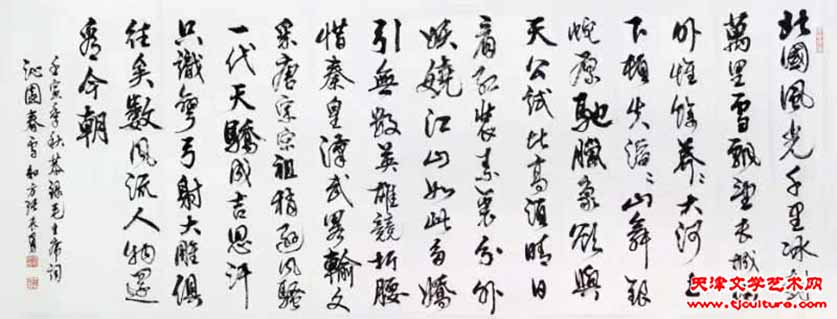 北國風光千里冰封
萬里雪飄望長城内
外惟餘莽〻大河上
下頓失滔〻山舞銀
蛇原馳臘象欲與
天公試比高須晴日
看紅裝素裹分外
妖嬈江山如此多嬌
引無數英雄競折腰
惜秦皇漢武畧輸文
采唐宗宋祖稍遜風騷
一代天驕成吉思汗
只識彎弓射大雕俱
往矣數風流人物還
看今朝
壬寅季秋恭録毛主席詞
沁園春雪
天津文学艺术网
www.tjculture.com